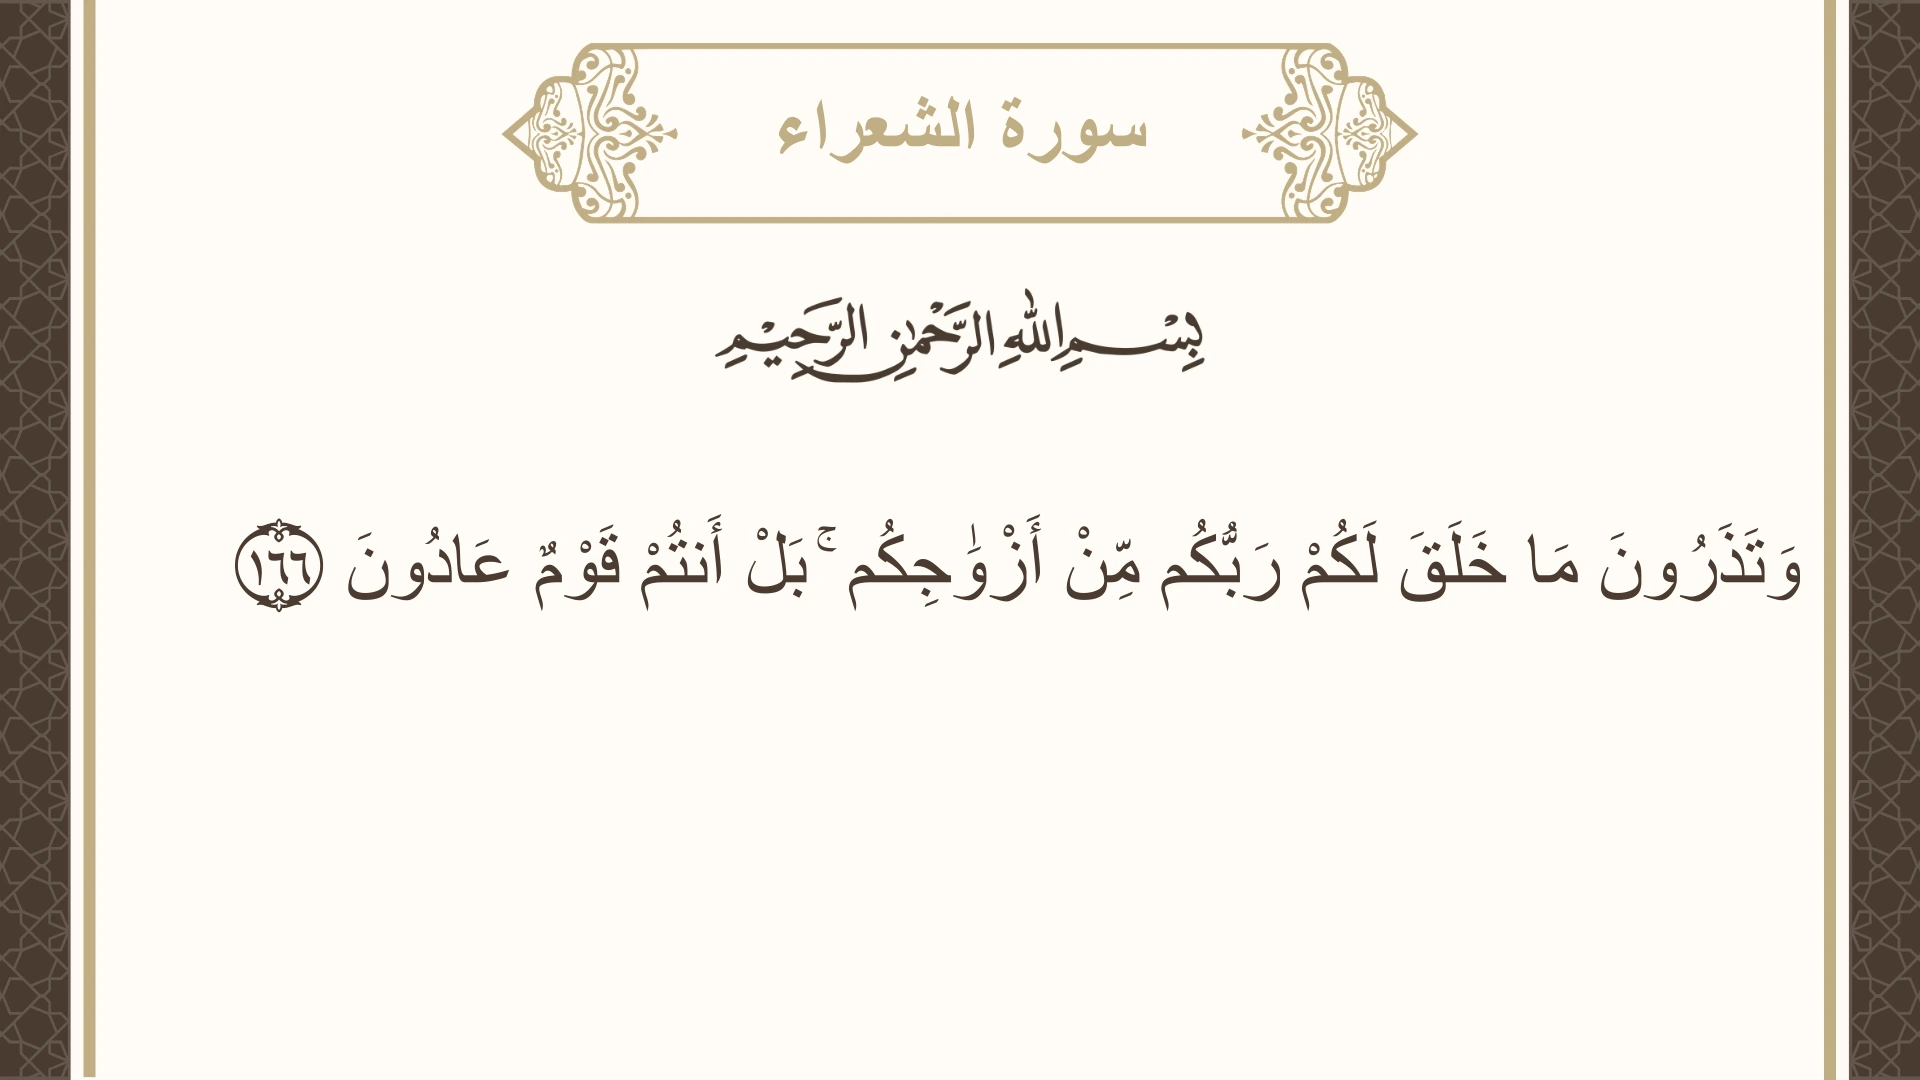 سورة الشعراء
بِسْمِ اللهِ الرَّحْمٰنِ الرَّحِيْمِ
وَتَذَرُونَ مَا خَلَقَ لَكُمْ رَبُّكُم مِّنْ أَزْوَٰجِكُم ۚ بَلْ أَنتُمْ قَوْمٌ عَادُونَ ١٦٦